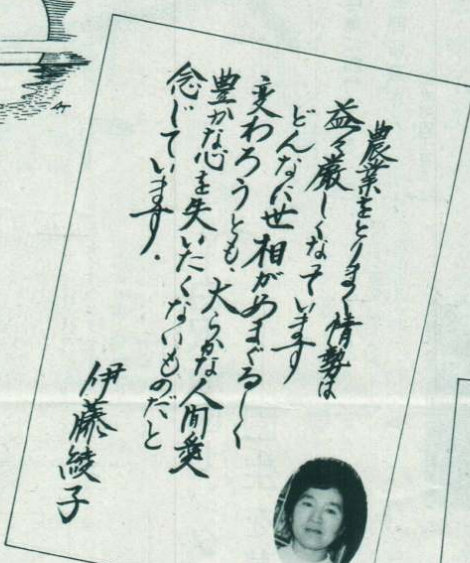 農業をとりまく情勢は
益々厳しくなっています
どんなに世相がめまぐるしく
変わろうとも、大らかな人間愛
豊かな心を失いたくないものだと
念じています.
伊藤綾子